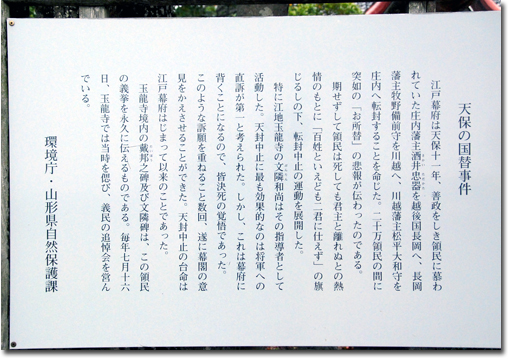 天保の国替事件
江戸幕府は天保十一年、善政をしき領民に慕わ
れていた庄内藩主酒井忠器を越後国長岡へ、長岡
藩主牧野備前守を川越へ、川越藩主松平大和守を
庄内へ転封することを命じた。二十万領民の間に
突如の「お所替」の悲報が伝わったのである。
期せずして領民は死しても君主と離れぬとの熱
情のもとに「百姓といえども二君に仕えず」の旗
じるしの下、転封中止の運動を展開した。
特に江地玉龍寺の文隣和尚はその指導者として
活動した。天封中止に最も効果的なのは将軍への
直訴が第一と考えられた。しかし、これは幕府に
背くことになるので、皆決死の覚悟であった。
このような訴願を重ねること数回、遂に幕閣の意
見をかえさせることができた。天封中止の台命は
江戸幕府はじまって以来のことであった。
玉龍寺境内の戴邦之碑及び文隣碑は、この領民
の義挙を永久に伝えるものである。毎年七月十六
日、玉龍寺では当時を偲び、義民の追悼会を営ん
でいる。
環境庁・山形県自然保護課